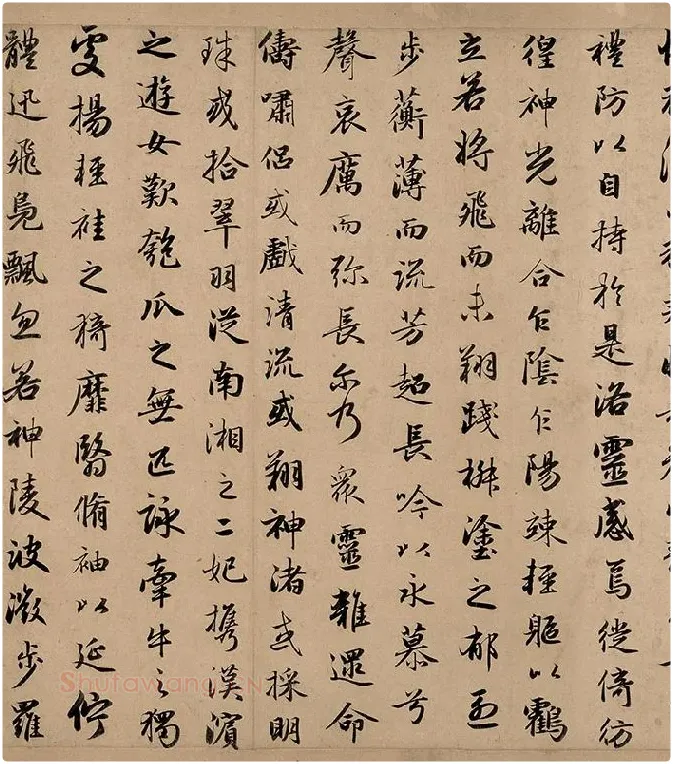 禮防以自持於是洛靈感焉徙倚彷
徨神光離合乍陰乍陽竦輕軀以鶴
立若將飛而未翔踐椒塗之郁烈
步蘅薄而流芳超長吟以永慕兮
聲哀厲而弥長尒乃眾靈雜遝命
儔嘯侶或戲清流或翔神渚或採明
珠或拾翠羽從南湘之二妃攜漢濱
之遊女歎匏瓜之無匹詠牽牛之獨
處揚輕袿之猗靡翳脩袖以延佇
體迅飛鳧飄忽若神陵波微步羅
Shufawang.CN